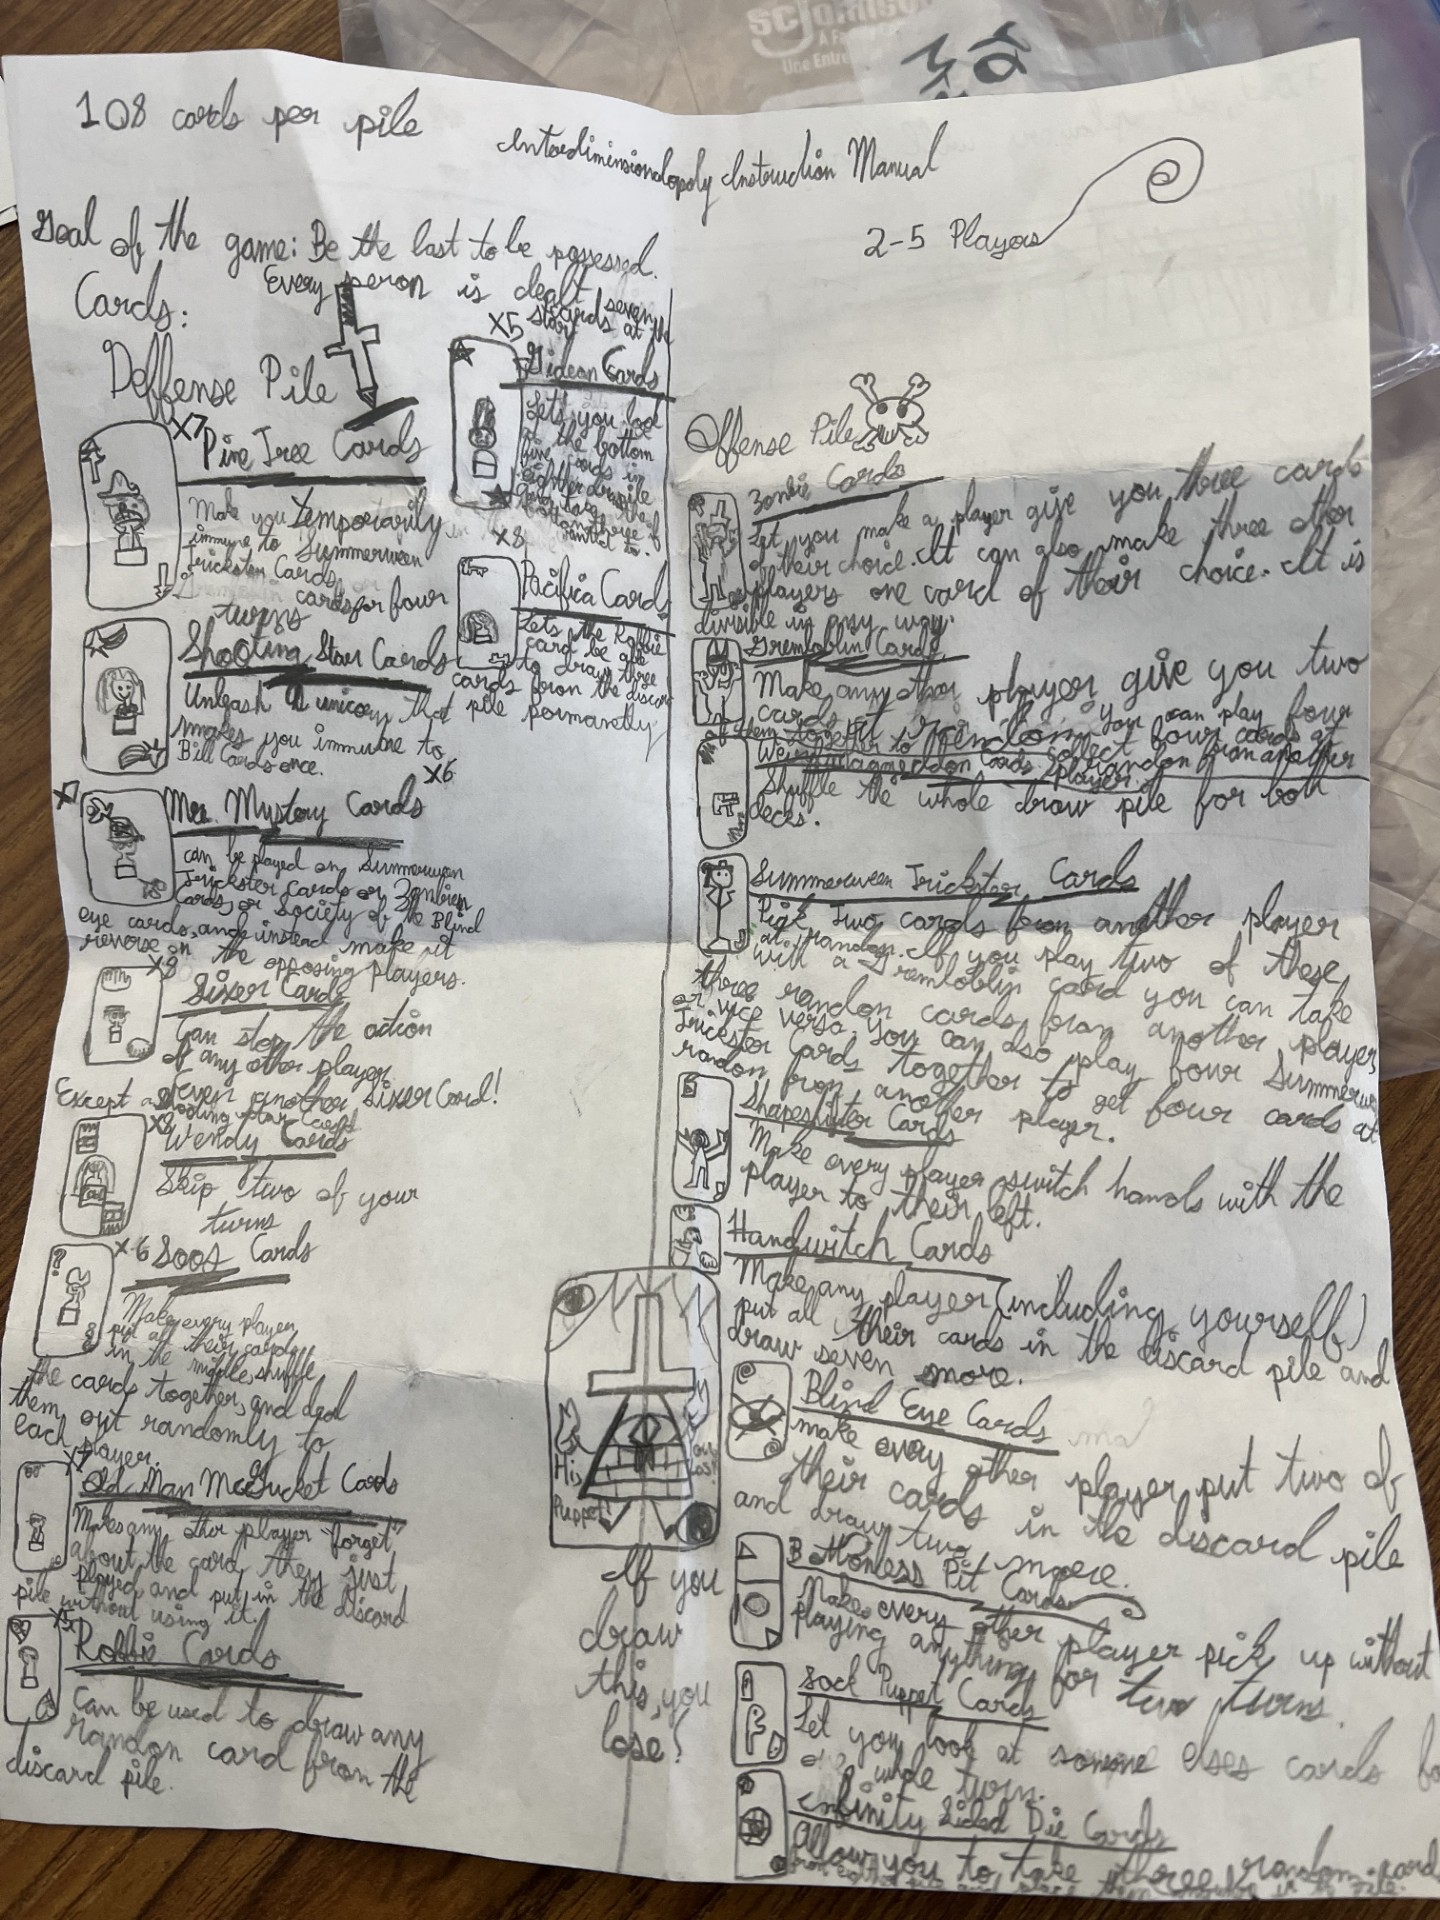 108 cards per pile
Intordimensionalopoly Instruction Manual
2-5 Players
Goal of the game: Be the last to be possessed.
Every person is dealt seven
cards at the
start
Cards:
Deffense Pile
X7
Pine Tree Cards
Make you temporarily
immune to Summerween
Trickster Cards
cards for four
turns
Shooting Star Cards
Unleash a unicorn that
makes you immune to
Bill Cards once.
X6
Mr. Mystery Cards
can be played on Summerween
Trickster cards or Zombie
cards, or Society of the Blind
eye cards, and instead make it
reverse on the opposing players.
X8
Sixer Cards
Can stop the action
of any other player.
Even another Sixer Card!
Except a Shooting Star Card
Wendy Cards
Skip two of your
turns
X6 Soos Cards
Make every player
put all their cards
in the middle, shuffle
the cards together, and deal
them out randomly to
each player.
X7
Old Man McGucket Cards
Makes any other player "forget"
about the card they just
played, and put in the discard
pile without using it!
X5
Robbie Cards
Can be used to draw any
random card from the
discard pile.
X5
Gideon Cards
Lets you look
at the bottom
five cards in
eighther draw pile
X8
Pacifica Cards
Lets the Robbie
card be able
to draw three
cards from the discard
pile permantly
His
Puppet!
You
Lost!
If you
draw
this, you
lose!
Offense Pile
Zombie Cards
Let you make a player give you three cards
of their choice. It can also make three other
players one card of their choice. It is
divisible in any way.
Gremloblin Cards
Make any other player give you two
cards at random. You can play four
of them together to collect four cards at
random from another
player.
Weirdmageddon Cards
Shuffle the whole draw pile for both
decks.
Summerween Trickster Cards
Pick Two cards from another player
at random. If you play two of these
with a Gremloblin card you can take
three random cards from another player,
or vice versa. You can also play four Summerween
Trickster Cards together to get four cards at
random from another player.
Shapeshifter Cards
Make every player switch hands with the
player to their left.
Handwitch Cards
Make any player (including yourself)
put all their cards in the discard pile and
draw seven more.
Blind Eye Cards
make every other player put two of
their cards in the discard pile
and draw two more.
Bottomless Pit Cards
Makes every other player pick up without
playing anything for two turns.
Sock Puppet Cards
Let you look at someone elses cards
whole turn.
Infinity Sided Die Cards
Allow you to take three random card